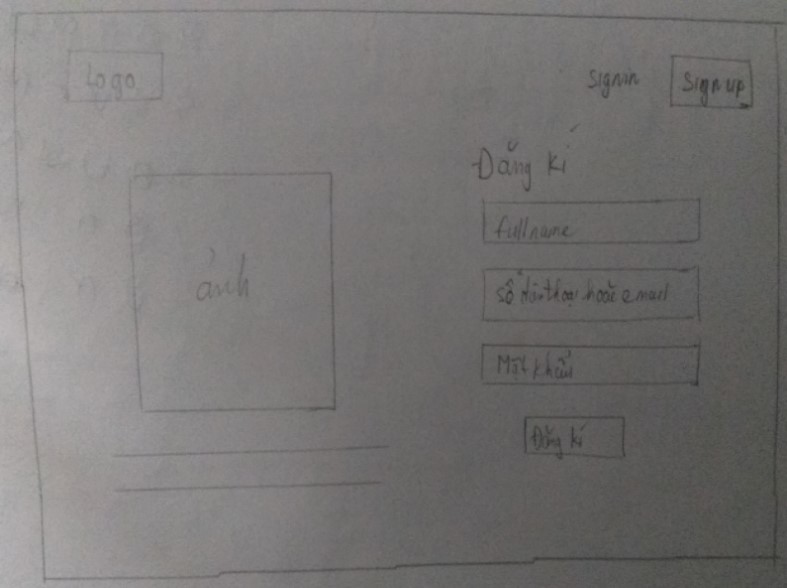 Logo
Signin
Sign up
Đăng kí
fullname
ảnh
số điện thoại hoặc email
Mật khẩu
Đăng kí